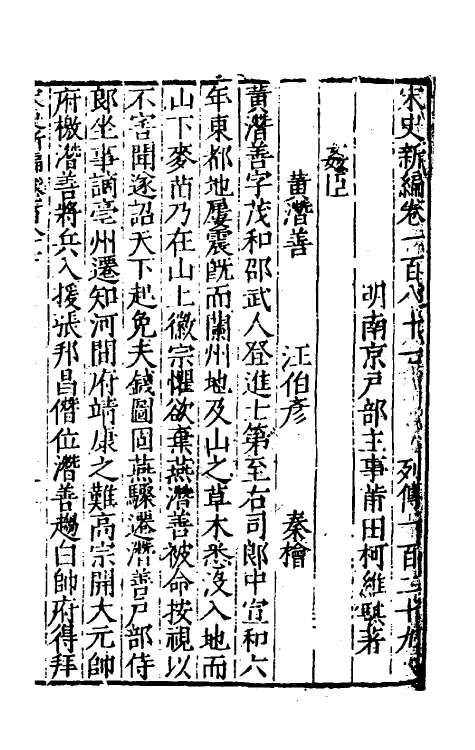 宋史新編卷一百八十七　列傳一百二十九
明南京戶部主事莆田柯維騏著
姦上
黃潛善　汪伯彥　秦檜
黃潛善字茂和邵武人登進士第至右司郎中宣和六
年東都地屢震旣而蘭州地及山之草木悉沒入地而
山下麥苗乃在山上徽宗懼欲棄燕潛善被命按視以
不害聞遂詔天下起免夫錢圖固燕驟遷潛善戶部侍
郎坐事謫亳州遷知河間府靖康之難高宗開大元帥
府檄潛善將兵入援張邦昌僭位潛善趨白帥府得拜